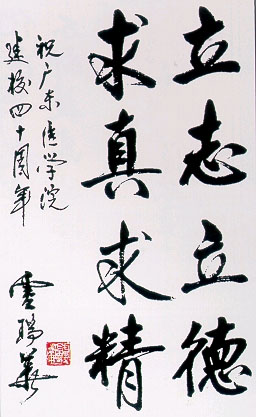 立志立德
求真求精
祝广东医学院
建校四十周年
雲瑞華